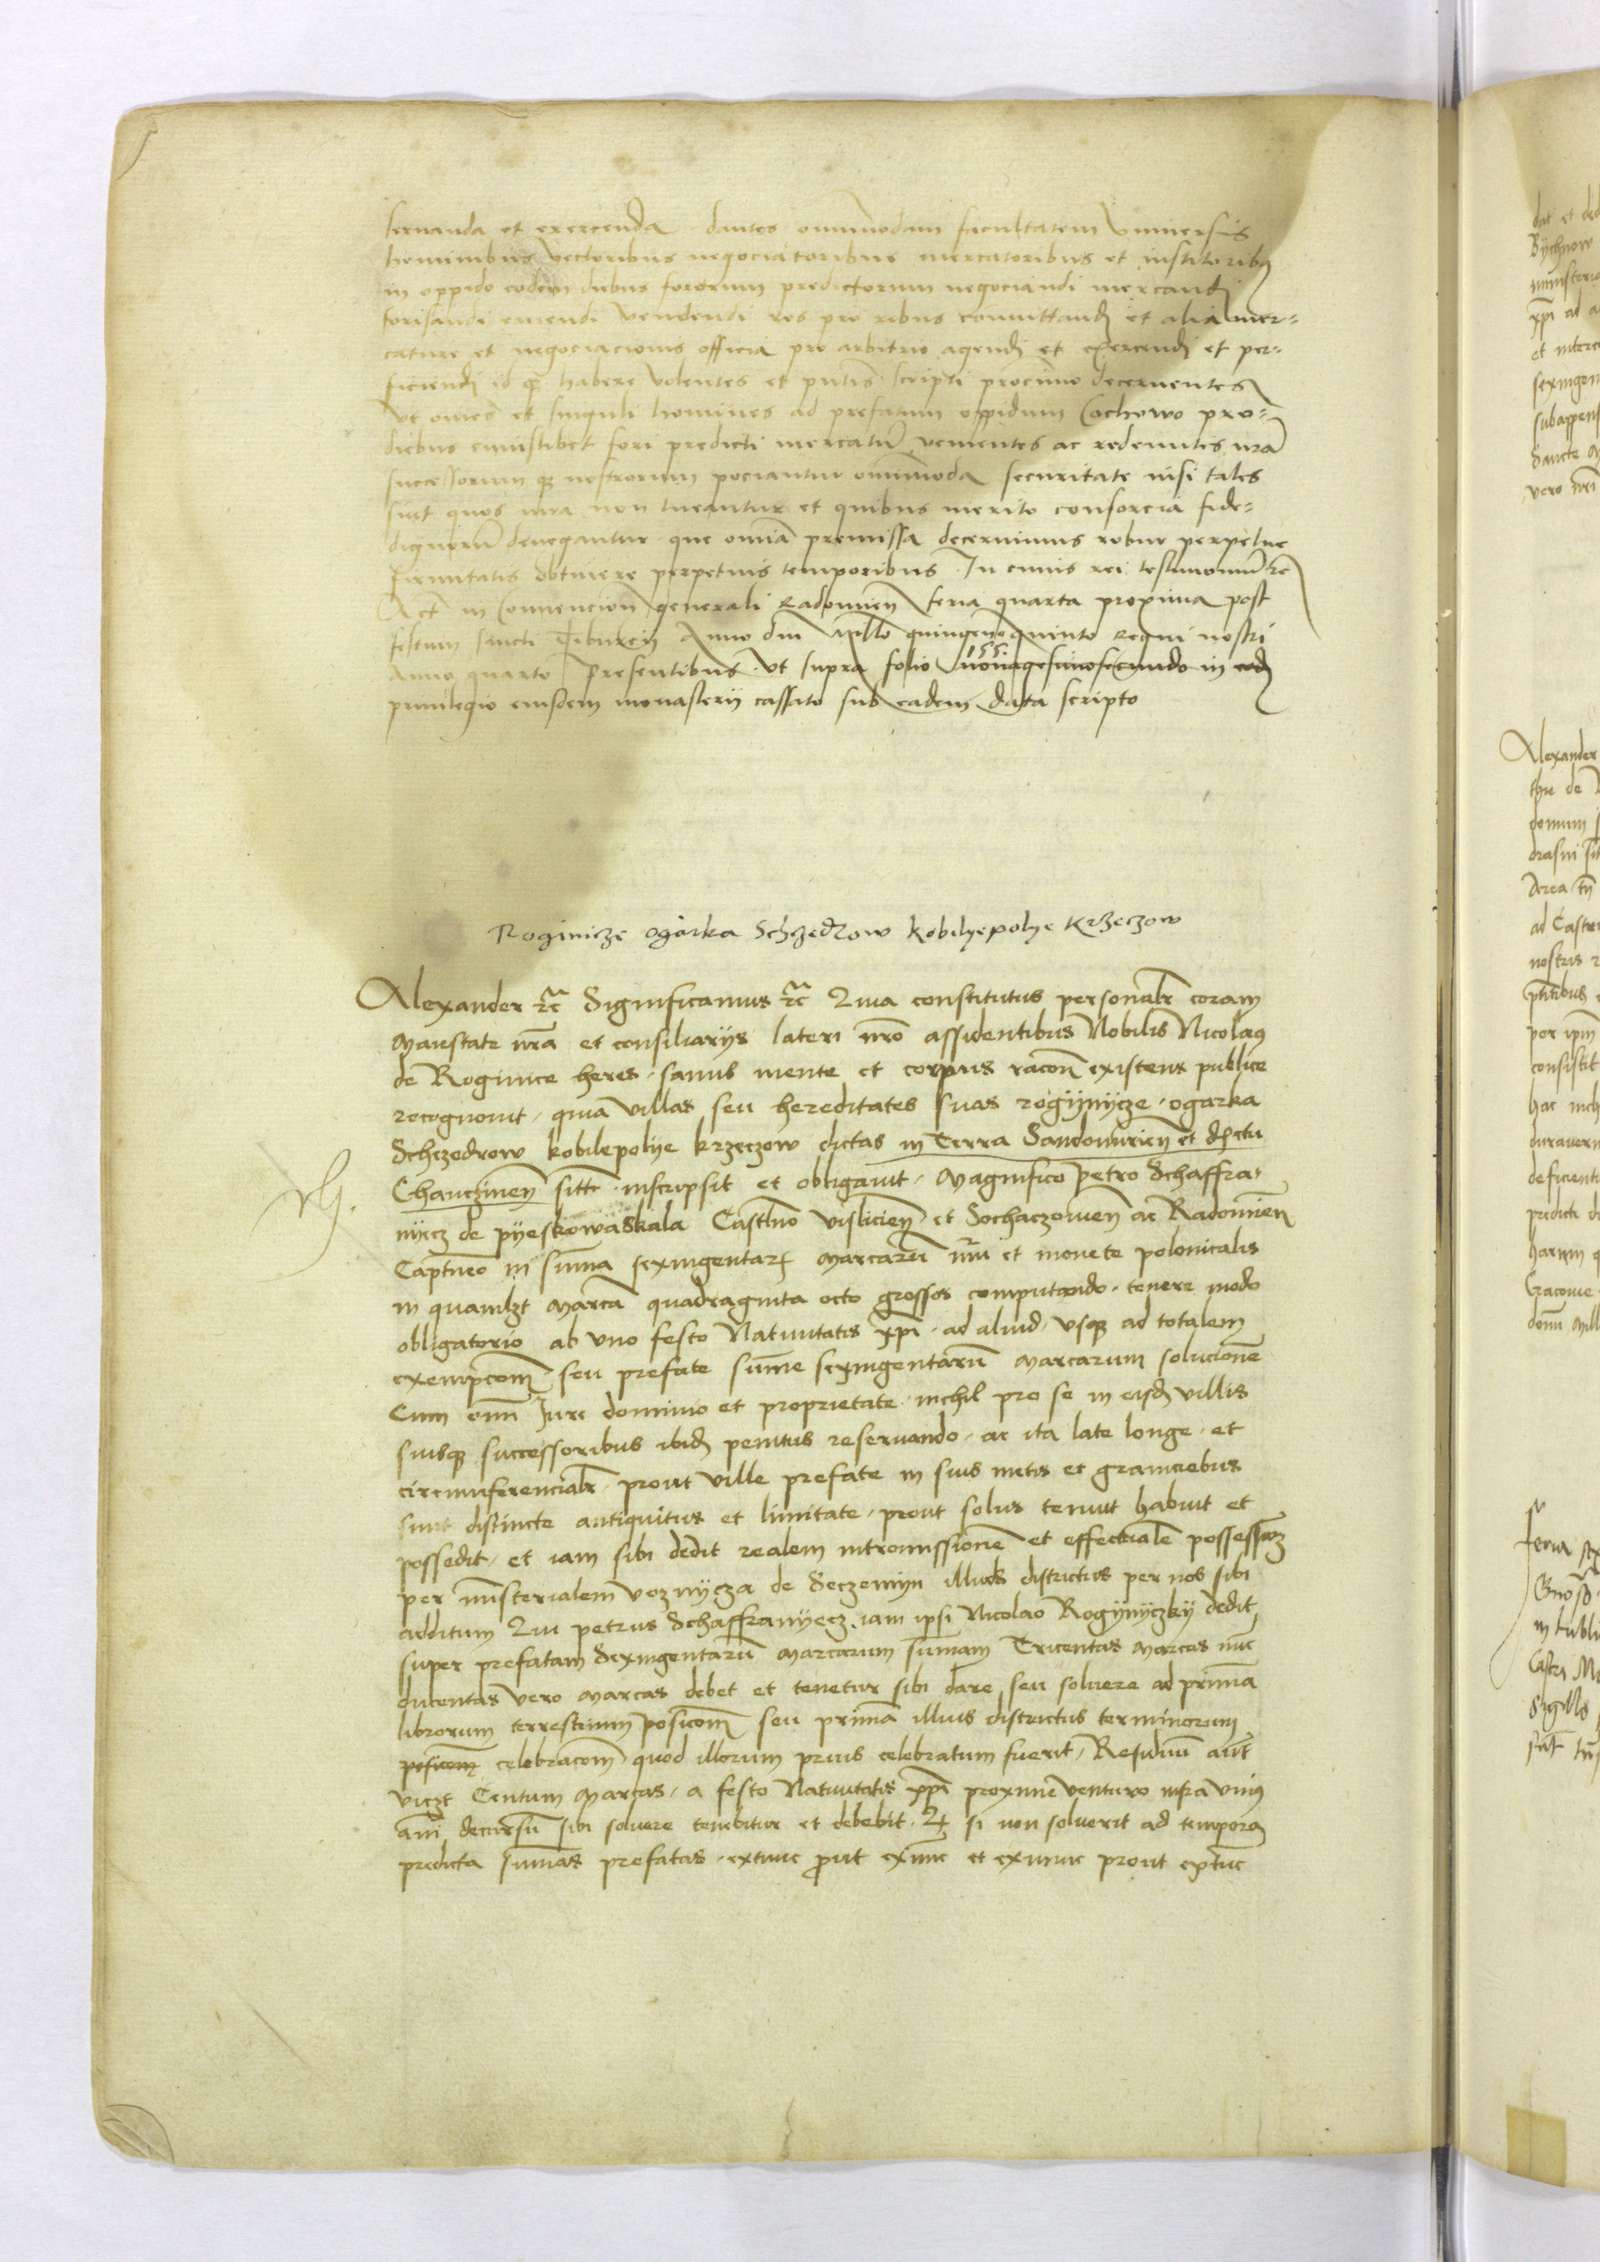 servanda et exercenda dantes omnimodam facultatem universis
hominibus vectoribus negociatoribus mercatoribus et institoribus
in oppido eodem diebus fororum predictorum negociandi mercandi
forisandi emendi vendendi res pro rebus commuttandi et alia mer-
cature et negociacionis officia pro arbitrio agendi et exercendi et per-
ficiendi id habere volentes et scripti decernentes
ut omnes et singuli homines ad prefatum oppidum Cochowo pro
diebus cuiuslibet fori predicti mercatum venientes ac redeuntes nrã
successorum qz nostrorum pociantur omnimoda securitate nisi tales
sint quos iura non tueantur et quibus merito consorcia fide-
dignorũ denegantur que omiã premissa decernimus robur perpetue
firmitatis obtinere perpetuis temporibus In cuius rei testimoniũ zc
Act in Convencion generali Radomien feria quarta proxima post
festum sancti Tiburcii Anno dni Millo quingenoquinto Regni nostri
Anno quarto Presentibus ut supra folio 155 nonagesimosecundo in eod
privilegio eiusdem monasterii cassato sub eadem data scripto
Roginicze ogarka Schczedrow kobilyepolye Krzeczow
Alexander zc Significamus zc Quia constitutus personalr coram
Maiestate nrã et consiliarys lateri nrõ assidentibus Nobilis Nicolaus
de Roginice heres sanus mente et corpus racoñ existens publice
recognovit quia villas seu hereditates suas rogynycze ogarka
Schczedrow kobilepolye krzeczow dictas in Terra Sandomirien et dstctu
Chanczinen sitt inscripsit et obligavit Magnifico Petro Schaffra-
nyecz de pyeskowaskala Castllno vislicien et Sochaczovien ac Radomien
Captneo in suma sexingentarz Marcarũ nri et monete polonicalis
in quamlzt Marcã quadraginta octo grossos computando tenere modo
obligatorio ab uno festo Nativitatis xpi ad aliud usqz ad totalem
exempcom seu prefate sume sexingentarũ Marcarum solucionẽ
Cum omi Jure dominio et proprietate nichil pro se in eisd villis
suisqz successoribus ibid penitus reservando ac ita late longe et
circumferencialr prout ville prefate in suis metis et graniciebus
sunt distincte antiquitus et limitate prout solus tenuit habuit et
possedit et iam sibi dedit realem intromissionẽ et effectualẽ possessionẽ
per ministerialem voznycza de Seczemyn illius districtus per nos sibi
additum Qui petrus Schaffranyecz iam ipsi Nicolao Rogynyczky dedit
super prefatam Sexingentarũ Marcarum sumam Tricentas Marcas nuc
ducentas vero Marcas debet et tenetur sibi dare seu solvere ad primã
librorum terrestrium posicom seu primã illius districtus terminorum
posicom celebracom quod illorum prius celebratum fuerit Residuũ aut
viczt Centum Marcas a festo Nativitatis xpi proxime venturo infra unius
anni decursũ sibi solvere tenebitur et debebit Qz si non solverit ad tempora
predicta sumas prefatas extunc prout exnunc et exnunc prout extunc